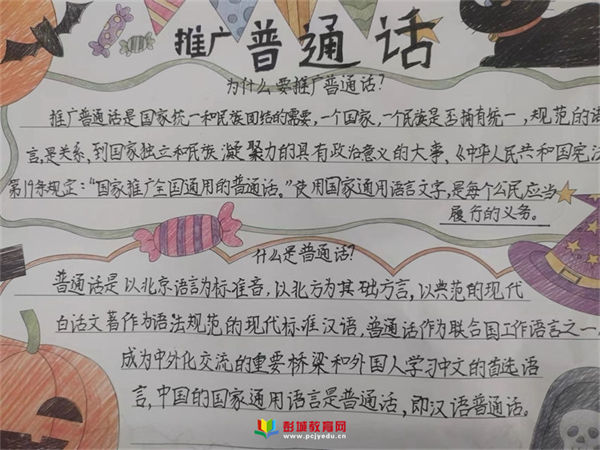 推广普通话
为什么要推广普通话?
推广普通话是国家统一和民族团结的需要,一个国家,一个民族是否拥有统一,规范的语
言,是关系,到国家独立和民族凝聚力的具有政治意义的大事,《中华人民共和国宪法
第19条规定:“国家推广全国通用的普通话。”使用国家通用语言文字,是每个公民应当
履行的义务。
什么是普通话?
普通话是以北京语言为标准音,以北方为其础方言,以典范的现代
白话文著作为语法规范的现代标准汉语,普通话作为联合国工作语言之一,
成为中外化交流的重要桥梁和外国人学习中文的首选语
言,中国的国家通用语言是普通话,即汉语普通话。
彭城教育网
www.pcjyedu.cn